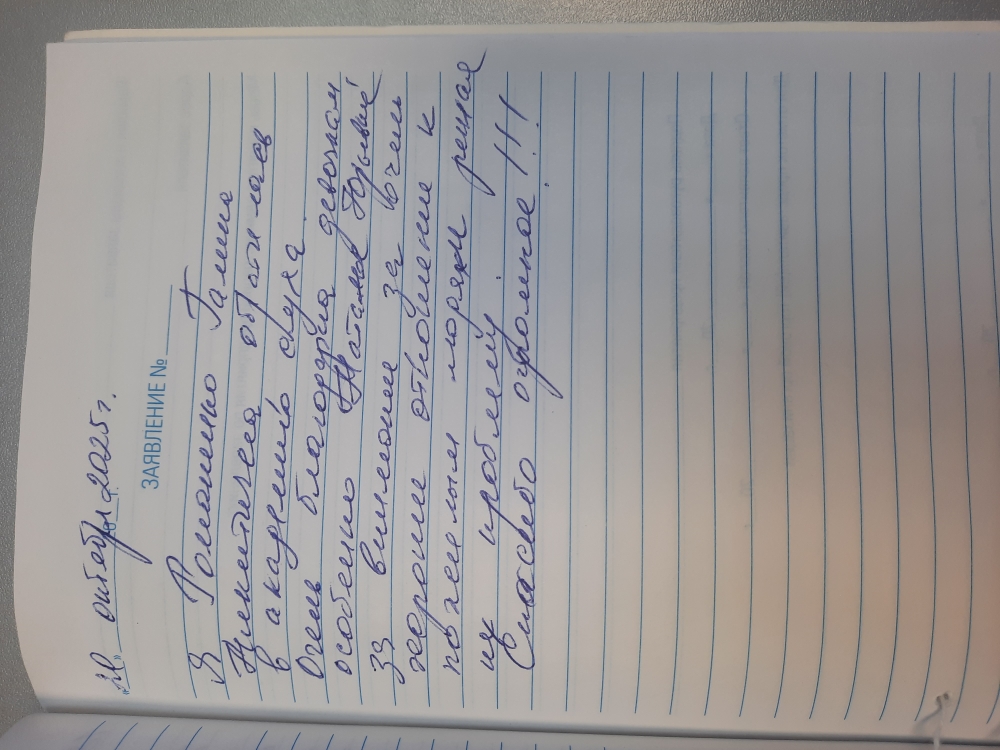 " " октября 2025 г.
ЗАЯВЛЕНИЕ №
Я Романенко Галина
Никитична обратилась
в академию слуха.
Очень благодарна девочкам
особенно Наталье Юрьевне
за внимание за очень
хорошие отношение к
пожелым людям решая
их проблему
Спасибо огромное!!!